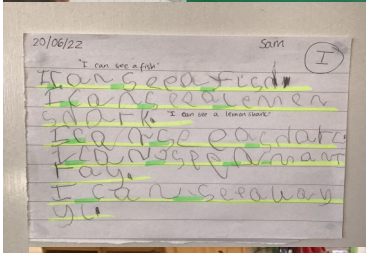 20/06/22 Sam I
"I can see a fish"
I can see a fish
I can see a lemen
shark. "I can see a lemon shark"
I can see a sdatc
I can see mant
ray.
I can see a
yu